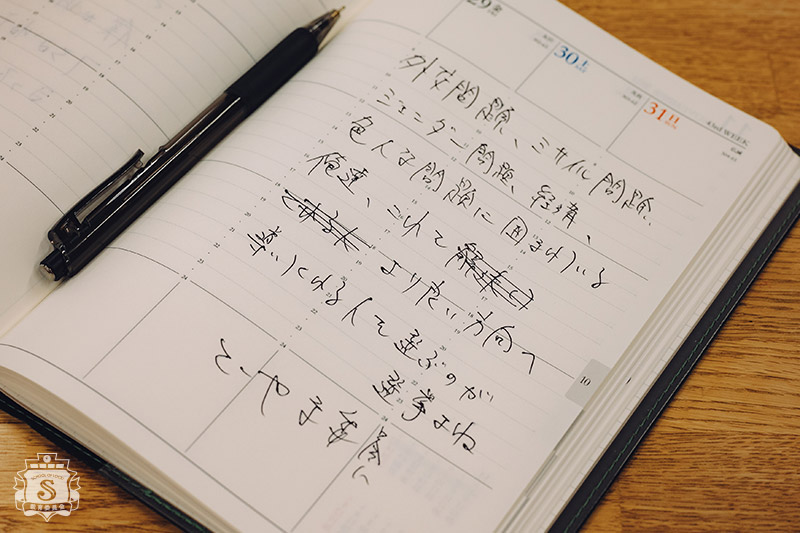 29 金
30 土
31 日
43rd WEEK
外交問題、ミサイル問題、
ジェンダー問題、経済、
色んな問題に囲まれている
俺達、これを
より良い方向へ
導いてくれる人を選ぶのが
選挙よね
とーやま委員長
10
SCHOOL OF LOCK!
S